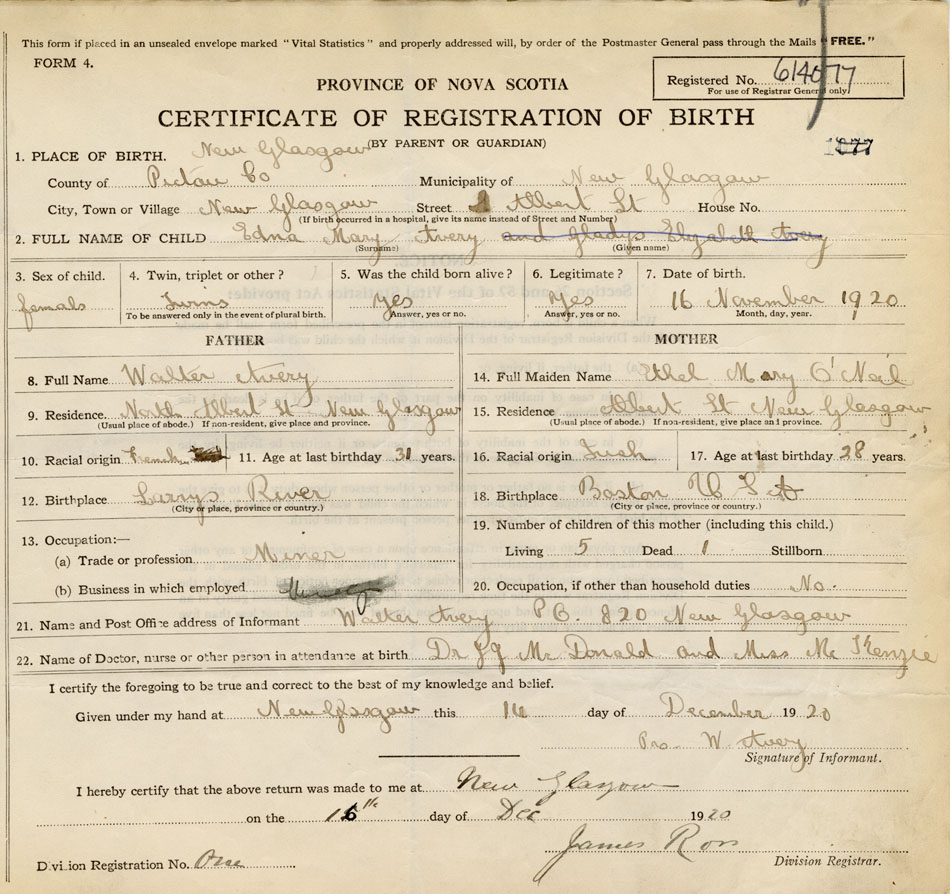 This form if placed in an unsealed envelope marked "Vital Statistics" and properly addressed will, by order of the Postmaster General pass through the Mails "FREE."
FORM 4.
Registered No. 614077
For use of Registrar General only
PROVINCE OF NOVA SCOTIA
CERTIFICATE OF REGISTRATION OF BIRTH
(BY PARENT OR GUARDIAN)
1. PLACE OF BIRTH. New Glasgow
County of Pictou Co Municipality of New Glasgow
City, Town or Village New Glasgow Street Albert St House No.
(If birth occurred in a hospital, give its name instead of Street and Number)
2. FULL NAME OF CHILD Edna Mary Avery and Gladys Elyzabett Avery
(Surname) (Given name)
3. Sex of child. 4. Twin, triplet or other? 5. Was the child born alive? 6. Legitimate? 7. Date of birth.
female Twins yes Yes 16 November 1920
To be answered only in the event of plural birth. Answer, yes or no. Answer, yes or no. Month, day, year.
FATHER MOTHER
8. Full Name Walter Avery 14. Full Maiden Name Ethel Mary O'Neil
9. Residence. North Albert St New Glasgow 15. Residence Albert St New Glasgow
(Usual place of abode.) If non-resident, give place and province. (Usual place of abode.) If non-resident, give place and province.
10. Racial origin French 11. Age at last birthday 31 years. 16. Racial origin Irish 17. Age at last birthday 28 years.
12. Birthplace Larrys River 18. Birthplace Boston U S
(City or place, province or country.) (City or place, province or country.)
13. Occupation:— 19. Number of children of this mother (including this child.)
(a) Trade or profession Miner Living 5 Dead 1 Stillborn
(b) Business in which employed 20. Occupation, if other than household duties No.
21. Name and Post Office address of Informant Walter Avery P.O. 820 New Glasgow
22. Name of Doctor, nurse or other person in attendance at birth Dr J J Mc Donald and Miss Mc Kenzie
I certify the foregoing to be true and correct to the best of my knowledge and belief.
Given under my hand at New Glasgow this 16 day of December 1920
W Avery
Signature of Informant.
I hereby certify that the above return was made to me at New Glasgow
on the 16th day of Dec 1920
James Ross
Division Registrar No. One Division Registrar.